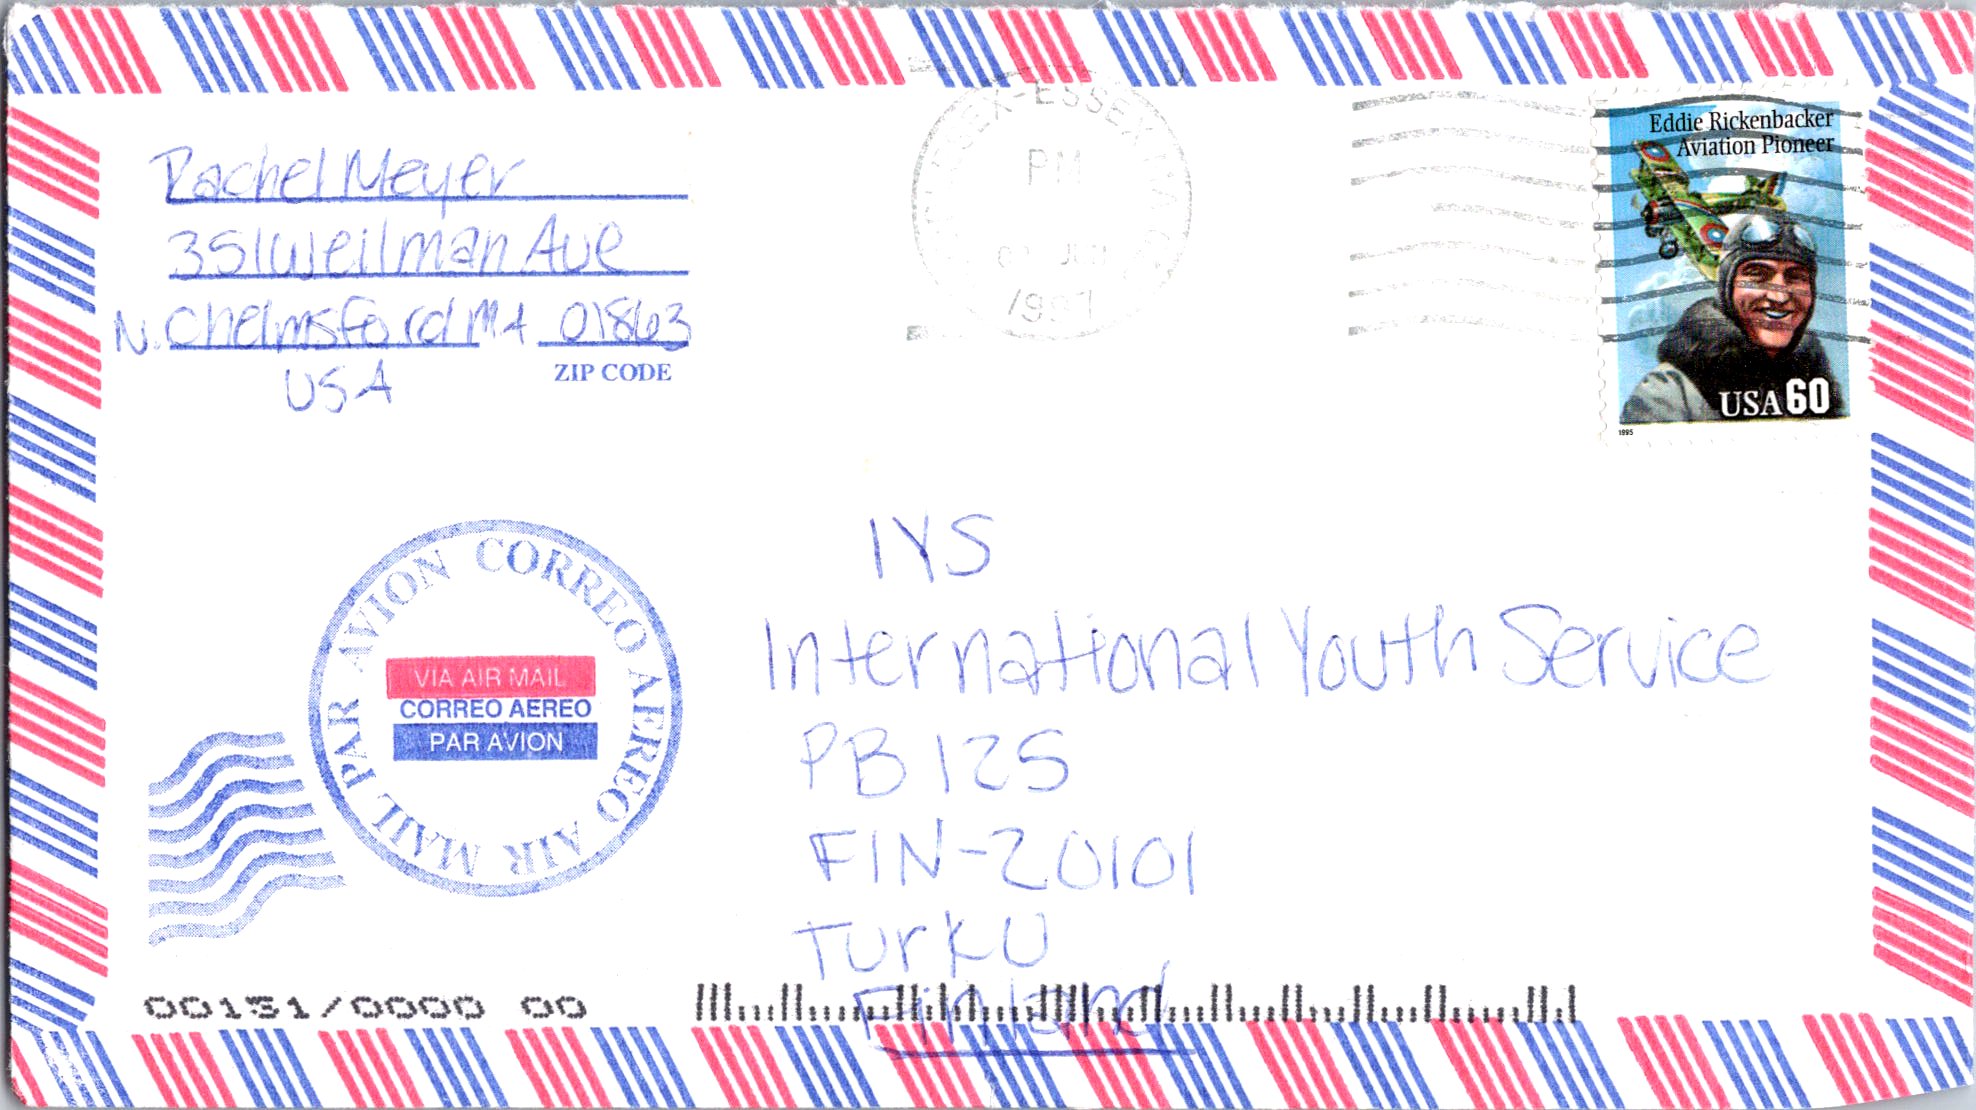 Rachel Meyer
351 Wellman Ave
N. Chelmsford MA 01863
ZIP CODE
USA
PM
1997
Eddie Rickenbacker
Aviation Pioneer
USA 60
1995
PAR AVION CORREO AEREO AIR MAIL
VIA AIR MAIL
CORREO AEREO
PAR AVION
IYS
International Youth Service
PB 125
FIN-20101
Turku
Finland
00131/0000 00